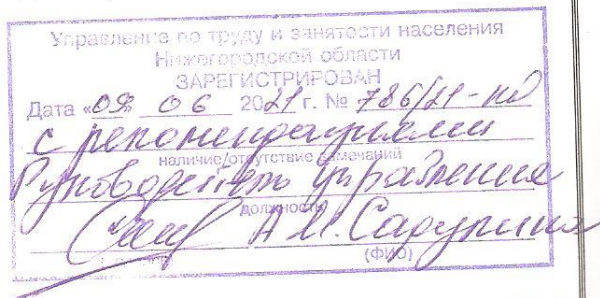 Управление по труду и занятости населения
Нижегородской области
ЗАРЕГИСТРИРОВАН
Дата «09» 06 2021 г. № 786/21-КД
с рекомендациями
наличие/отсутствие замечаний
Руководитель управления
должность
А.М. Садулина
(ФИО)